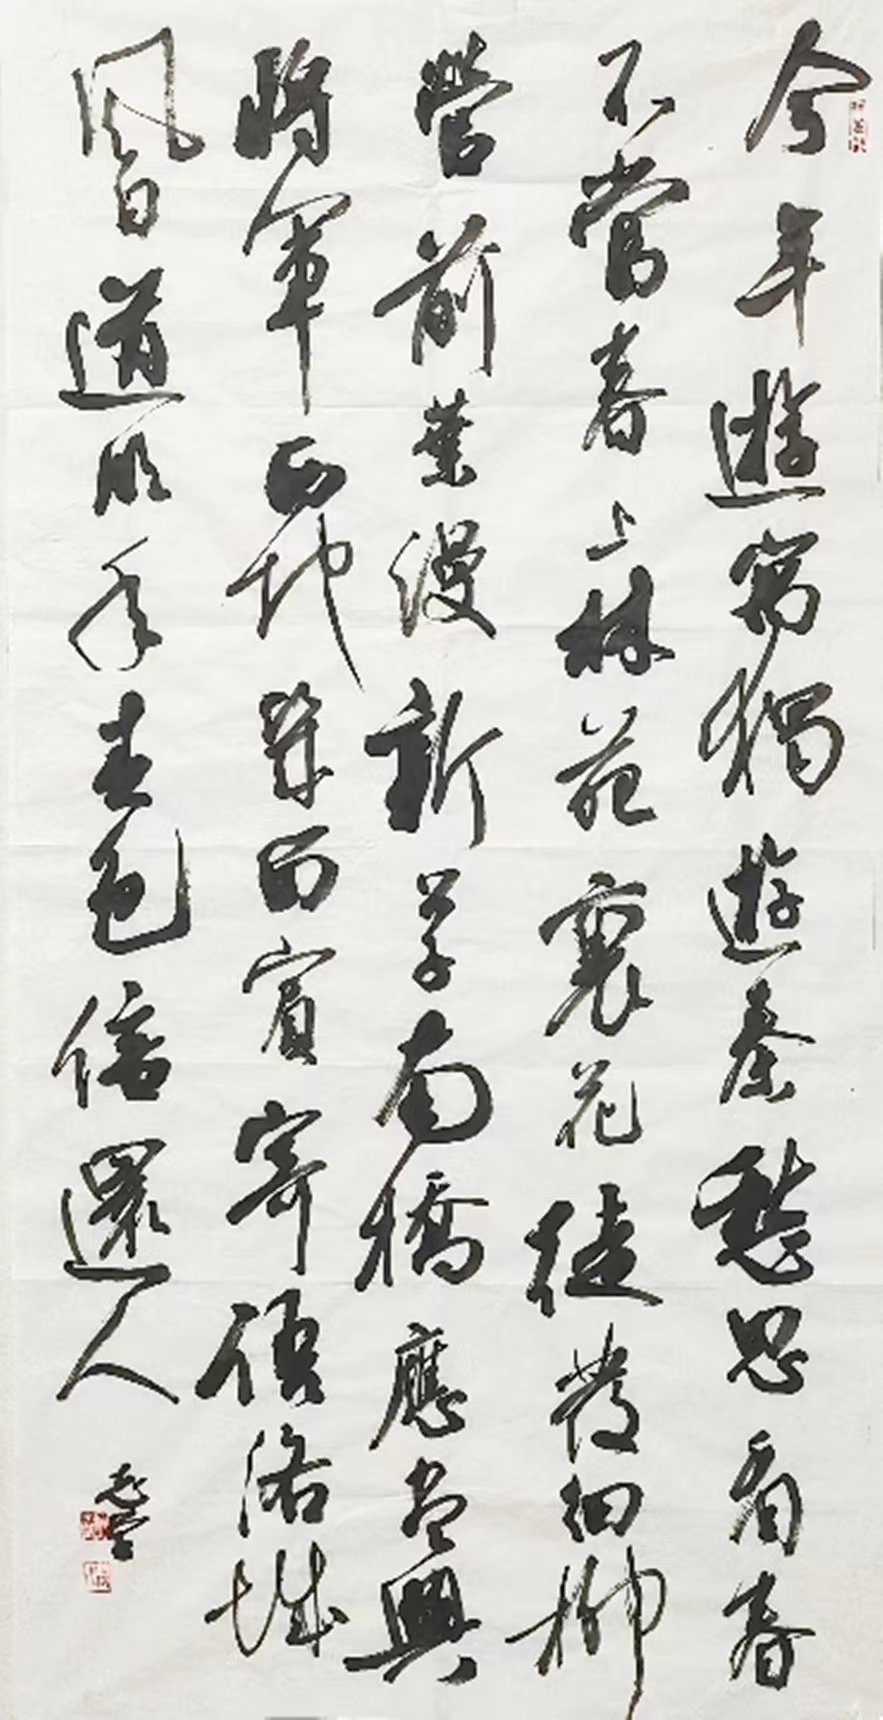 今年遊寓獨遊秦愁思看春
不當春上林苑裏花徒發細柳
營前葉漫新公子南橋應盡興
將軍西地幾留賓寄語洛城
風日道明年春色倍還人